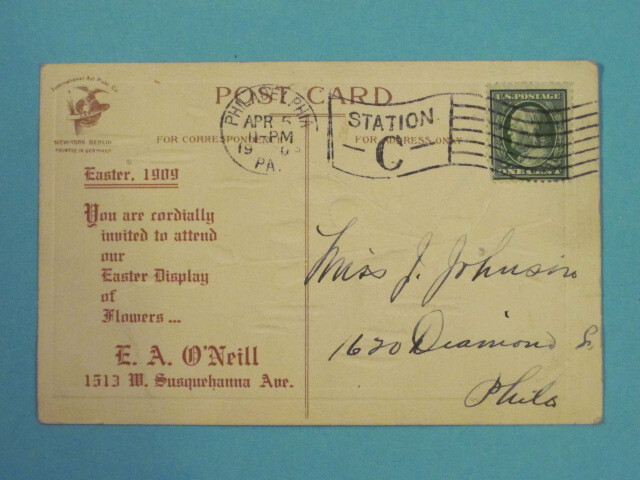 International Art Publ. Co.
NEW-YORK BERLIN
PRINTED IN GERMANY
POST CARD
FOR CORRESPONDENCE
FOR ADDRESS ONLY
PHILADELPHIA
APR 5
1-PM
19
PA.
STATION
C
U.S. POSTAGE
ONE CENT
Easter, 1909
You are cordially
invited to attend
our
Easter Display
of
Flowers ...
E. A. O'Neill
1513 W. Susquehanna Ave.
Miss J. Johnson
1620 Diamond S.
Phila